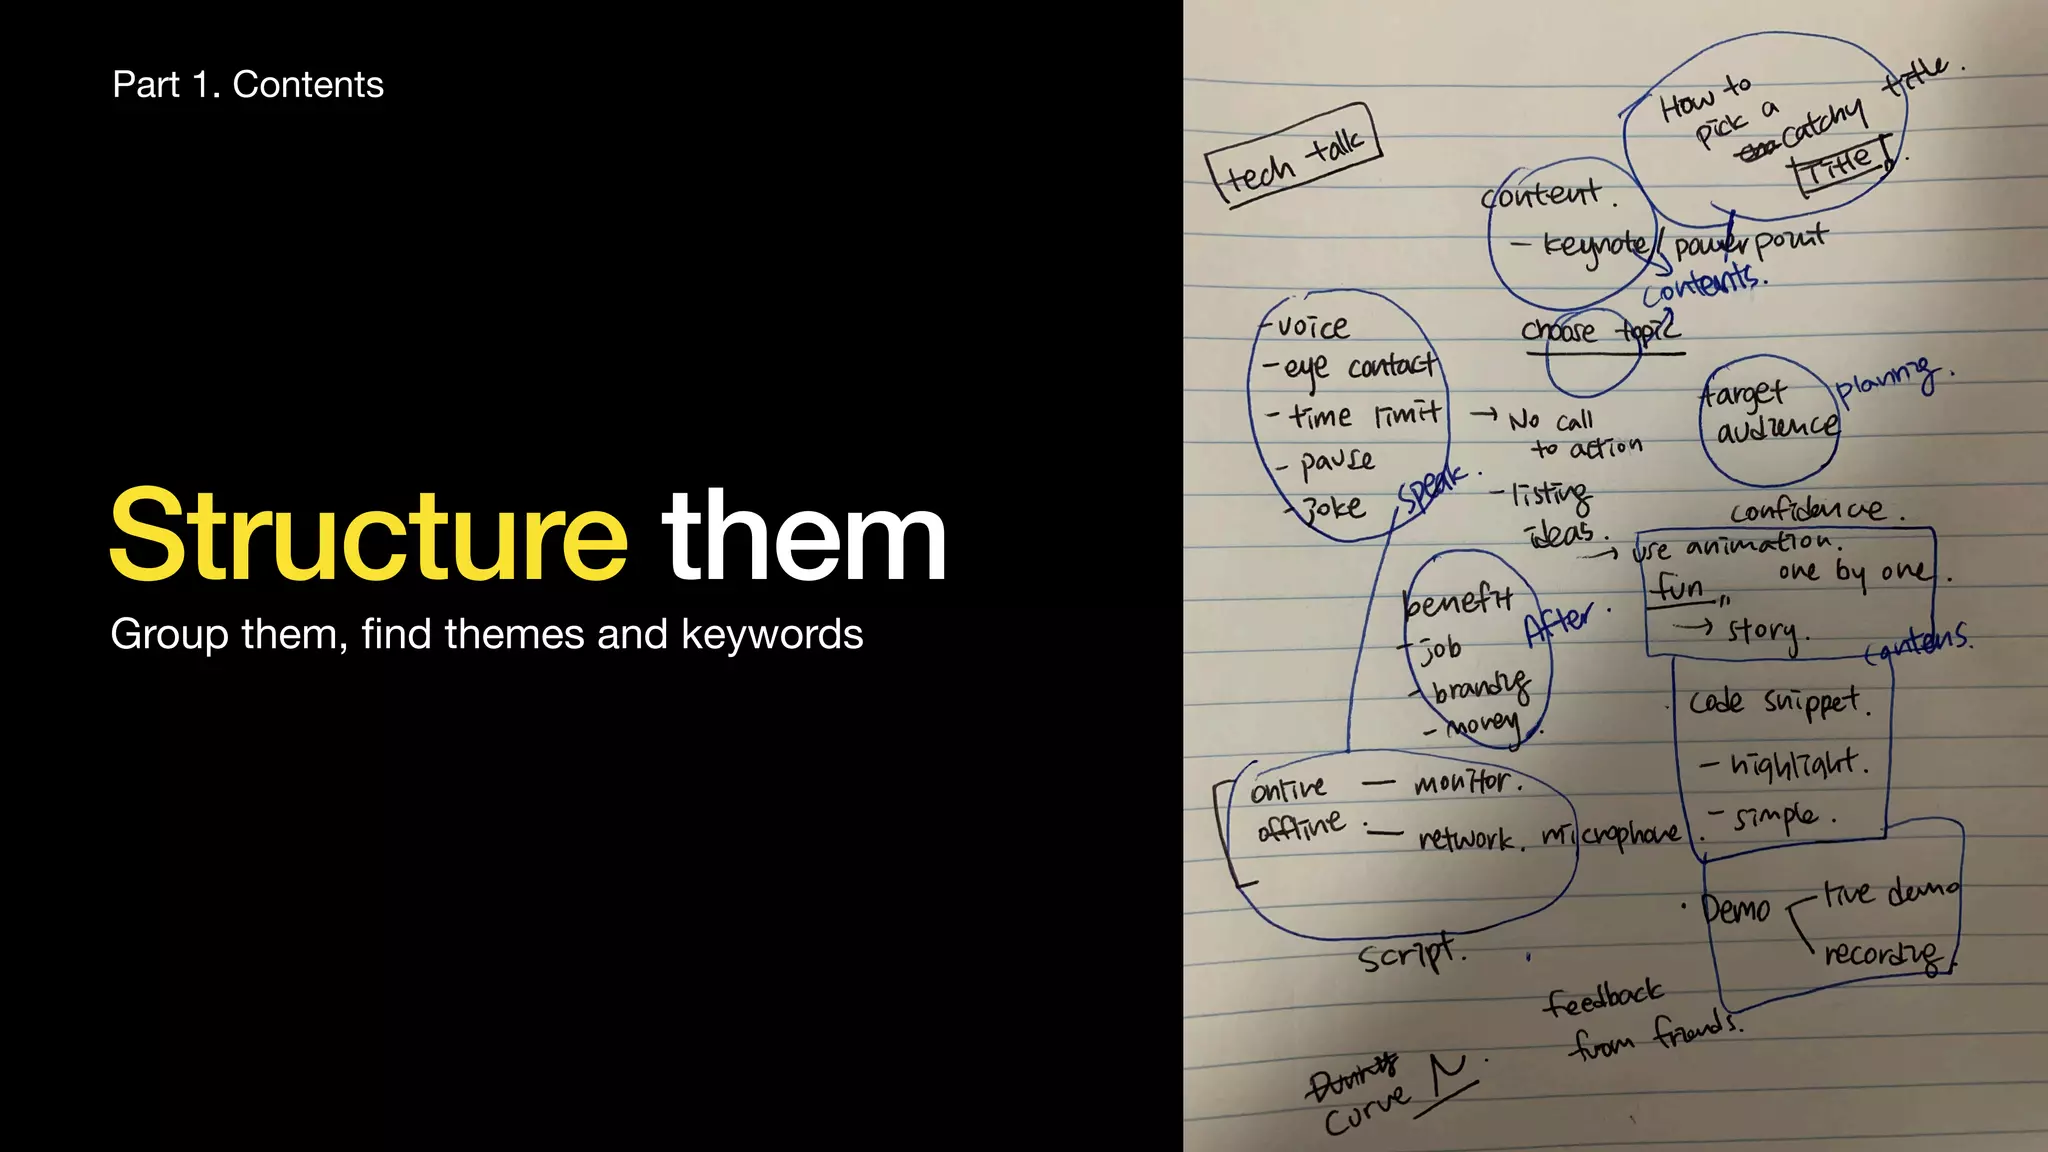 Part 1. Contents
Structure them
Group them, find themes and keywords
tech talk
How to
pick a
catchy title.
Title
content.
- keynote / powerpoint
contents.
choose topic
- voice
- eye contact
- time limit
- pause
- joke
speak.
→ No call
to action
- listing
ideas.
target
audience
planning.
confidence.
→ use animation.
one by one.
fun
→ story.
contens.
benefit
- job
- branding
- money.
After.
code snippet.
- highlight.
- simple.
online — monitor.
offline. — network. microphone.
script.
Demo
live demo
recording.
feedback
from friends.
curve